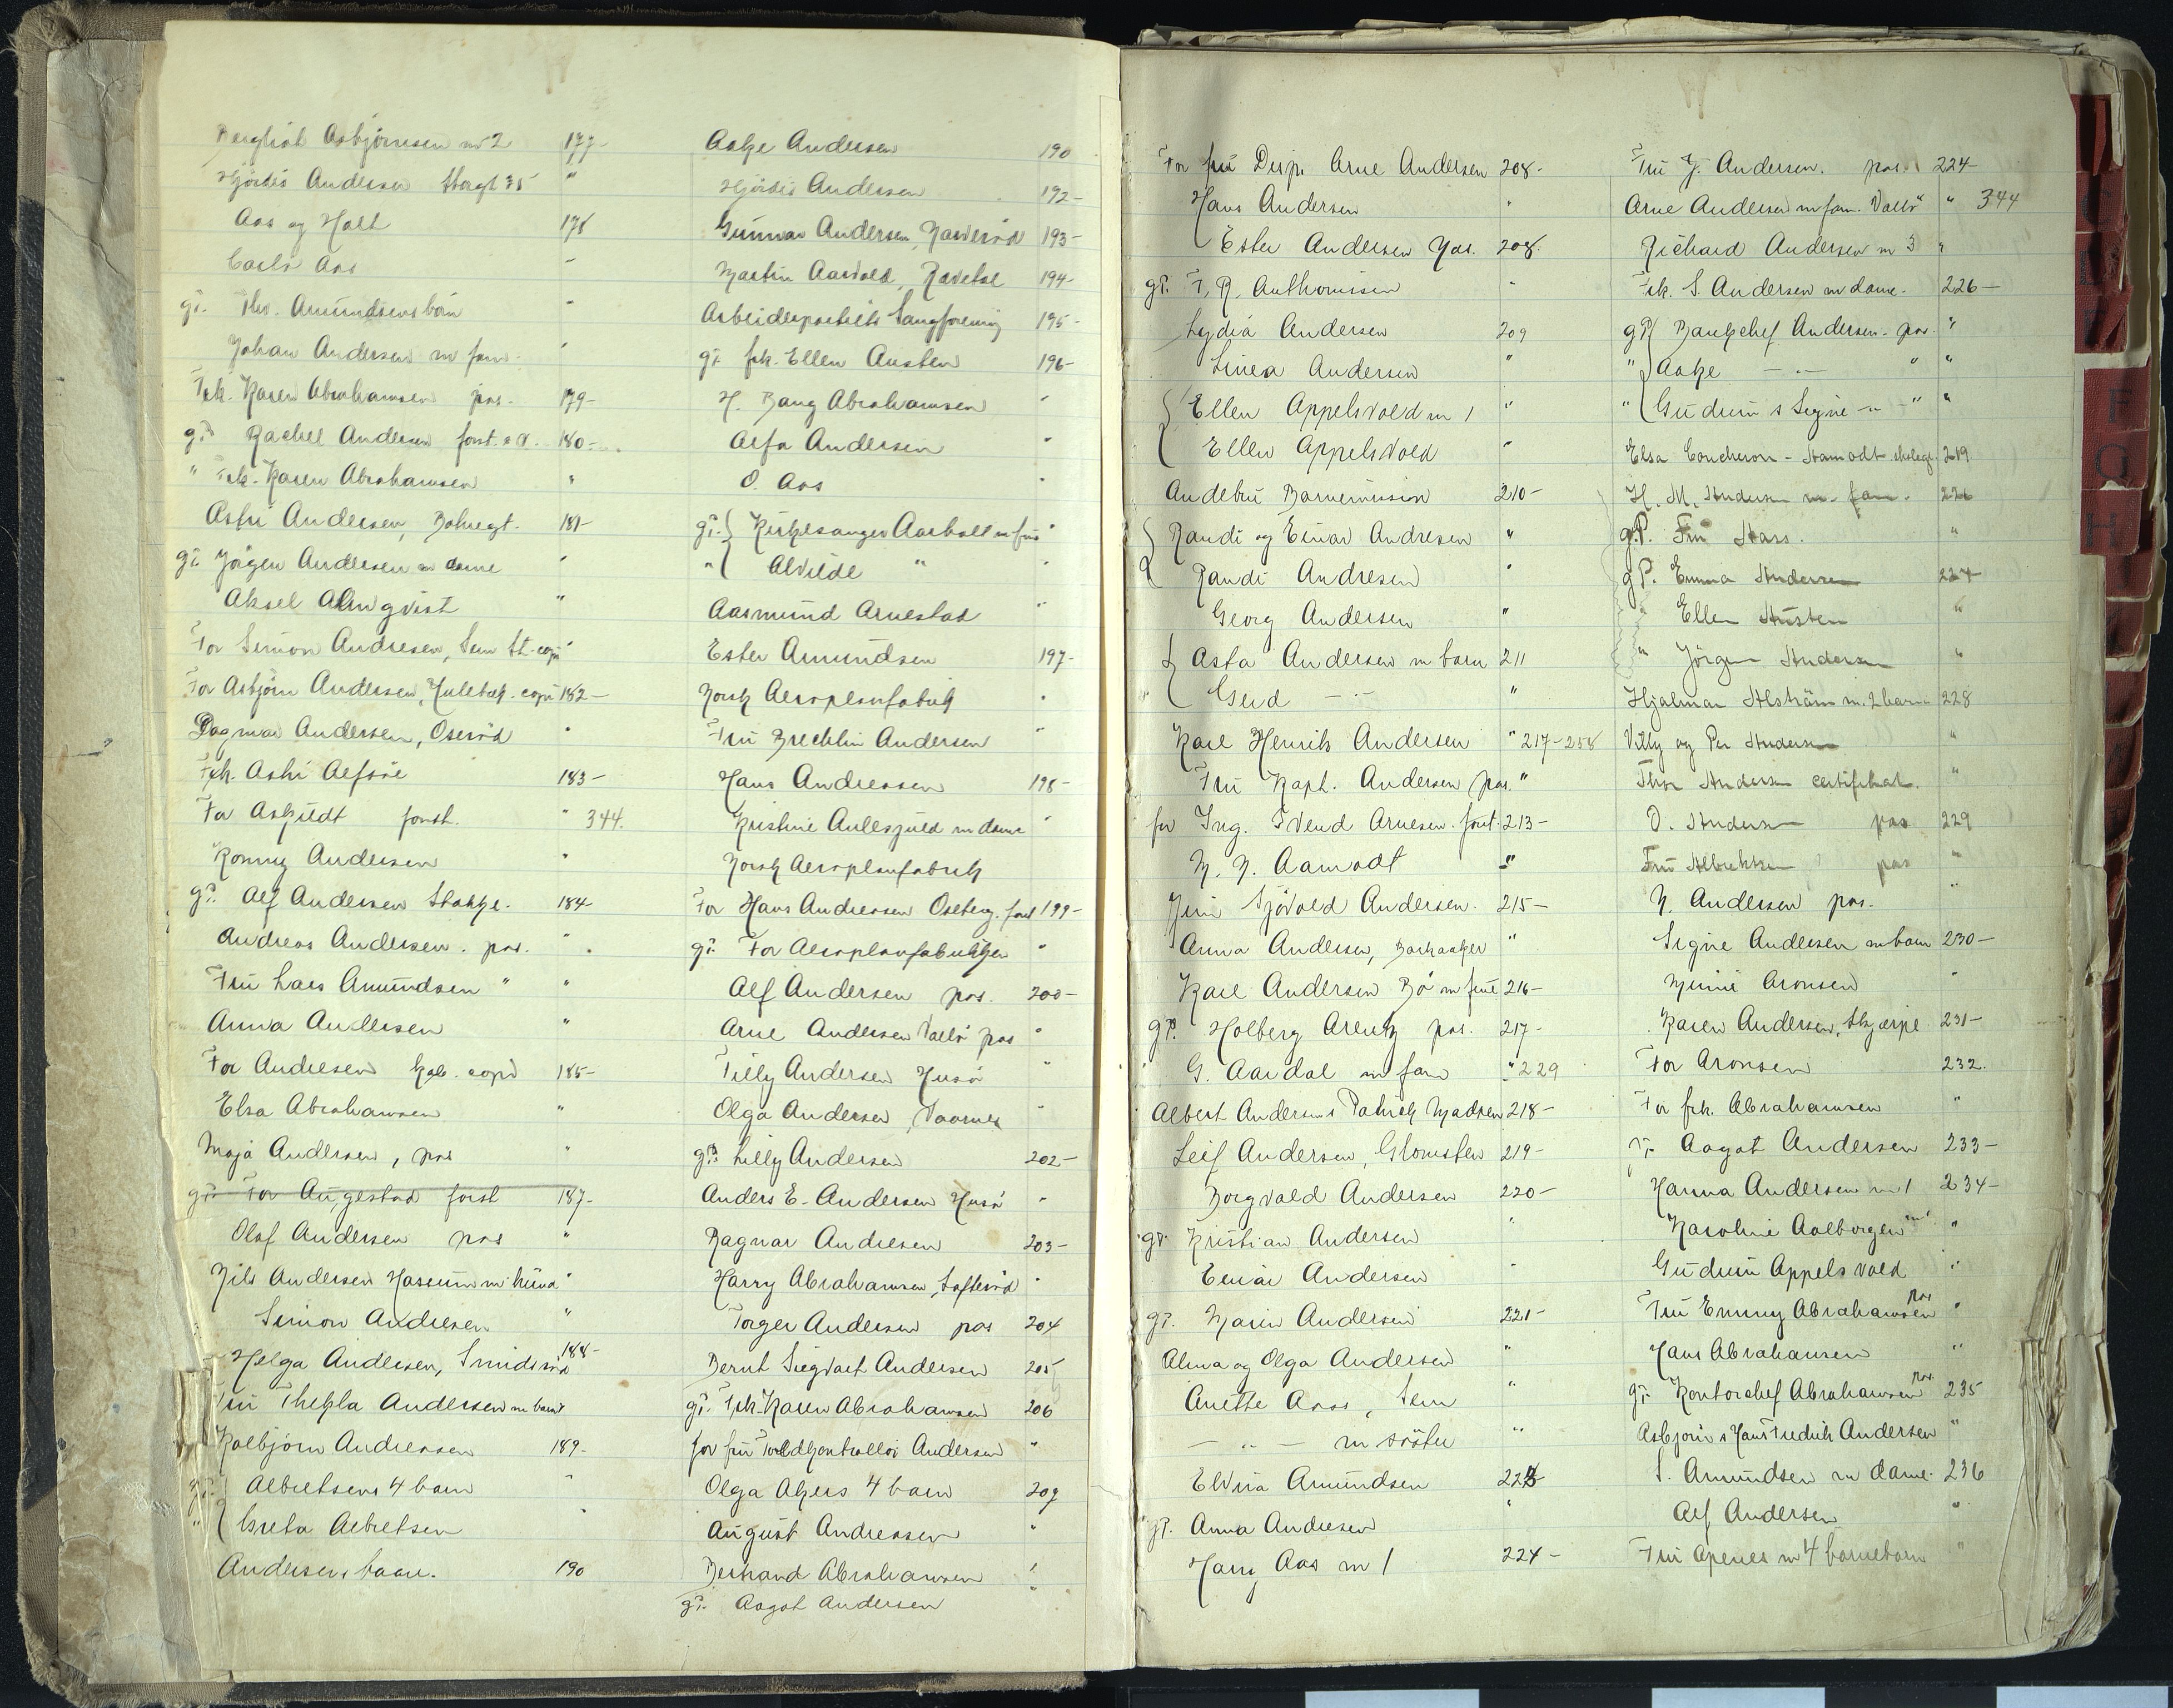 Asbjörnsen m 2 177-
Hjördis Andersen Storgt 35 "
Aas og Holt 178
Carls Aas "
gP. Thv. Amundsens barn "
Johan Andersen m fam. "
Frk. Karen Abrahamsen pas. 179-
gP. Rachel Andersen forst. 180-
" Frk. Karen Abrahamsen "
Andersen, 181-
gP. Jörgen Andersen m dame "
Aksel Almqvist "
For Simon Andresen, Sem st. copi "
For Asbjörn Andersen, copi 182-
Dagmar Andersen, Oseröd "
Frk. 183-
For Askildt forst. " 344.
Ronny Andersen "
gP. Alf Andersen Stokke. 184
Andreas Andersen. pas. "
Fru Lars Amundsen " "
Anna Andersen "
For Andresen copi 185-
Elsa Abrahamsen "
Maja Andersen, pas "
gP. For Augestad forst 187-
Olaf Andersen pas "
Nils Andersen Haseum m "
Simon Andresen "
Helga Andersen, Smidsröd 188-
Fru Thekla Andersen m barn
Kolbjörn Andreassen 189-
gP. Albretsens 4 barn "
" Greta Albretsen "
Andersens barn. 190
Aake Andersen 190
Hjördis Andersen 192-
Gunnar Andersen, 193-
Martin Aasvold, 194-
Arbeiderpartiets Sangforening 195-
gP. frk. Ellen Austen 196-
H. Bang Abrahamsen "
Alfa Andersen "
O. Aas "
gP. Kirkesanger Aarholt m frue "
" Alvilde " "
Aasmund Arnestad "
Ester Amundsen 197-
Norsk Aeroplanfabrik "
Fru Andersen "
Hans Andreassen 198-
Kristine m dame "
Norsk Aeroplanfabrik
For Hans Andreassen Oseberg. forst 199-
gP. For Aeroplanfabrikken "
Alf Andersen pas. 200-
Arne Andersen Vallö pas "
Tilly Andersen Husö "
Olga Andersen, "
gP. Lilly Andersen 202-
Anders E. Andersen Husö "
Ragnar Andresen 203-
Harry Abrahamsen, "
Torger Andersen pas 204
Bernt Siegvart Andersen 205
gP. Frk. Karen Abrahamsen 206
for fru Toldkontrollör Andersen "
Olga Akers 4 barn 207
August Andreassen "
Bertrand Abrahamsen "
gP. Aagot Andersen "
For fru Disp. Arne Andersen 208-
Hans Andersen "
Ester Andersen 208.
gP. F. R. Anthonissen "
Lydia Andersen 209
Linea Andersen "
Ellen Appelsvold m 1 "
Ellen Appelsvold "
Andebu Barnemission 210-
Randi og Einar Andresen "
Randi Andresen "
Georg Andersen "
Asta Andersen m barn 211
Gerd - " - "
Karl Henrik Andersen " 217-258
Fru Kapt. Andersen pas. "
for Ing. Svend Arnesen. forst. 213-
N. N. Aamodt "
Sjövold Andersen. 215-
Anna Andersen, Barkaaker "
Karl Andersen Bö m frue 216-
gP. Holberg Arentz pas. 217-
G. Aardal m fam " 229
Albert Andersen s Patrick Madsen 218-
Leif Andersen, 219-
Borgvald Andersen 220-
gP. Kristian Andersen "
Einar Andersen "
gP. Marie Andersen 221-
Alma og Olga Andersen "
Anette Aas, Sem "
- " - m söster "
Elvira Amundsen 223
gP. Anna Andresen "
Harry Aas m 1 224-
Fru J. Andersen. pas. 224-
Arne Andersen m fam. Vallö " 344
Richard Andersen m 3 "
Frk. S. Andersen m dame. 226-
gP. Bankchef Andersen. pas. "
" Aake - " - " "
" Gudrun s Signe - " - " "
Elsa Coucheron-Aamodt 219
H. M. Andersen m. fam. 226
g.P. Fru Aass. "
g.P. Emma Andersen 227
" Ellen Austen "
" Jörgen Andersen "
Hjalmar Alström m. 2 barn 228
Villy og Per Andersen "
Thor Andersen certifikat. "
O. Andersen pas 229
Fru Albrektsen pas "
N. Andersen pas. "
Signe Andersen m barn 230-
Mimi Aronsen "
Karen Andersen, 231-
For Aronsen 232.
For frk. Abrahamsen "
gP. Aagot Andersen 233-
Hanna Andersen m 1 234-
Karoline Aalborgen m 1 "
Gudrun Appelsvold "
Fru Emmy Abrahamsen pas "
Hans Abrahamsen "
gP. Kontorchef Abrahamsen pas. 235
Asbjörn s Hans Fredrik Andersen "
S. Amundsen m dame. 236
Alf Andersen "
Fru Apenes m 4 barnebarn "